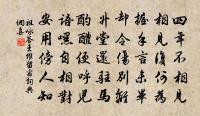 四年不相見
相見復何為
握手言未畢
却令傷別離
升堂還駐馬
酌醴便呼兒
語嘿自相對
安用傍人知
祖咏答王維留宿詞典
網